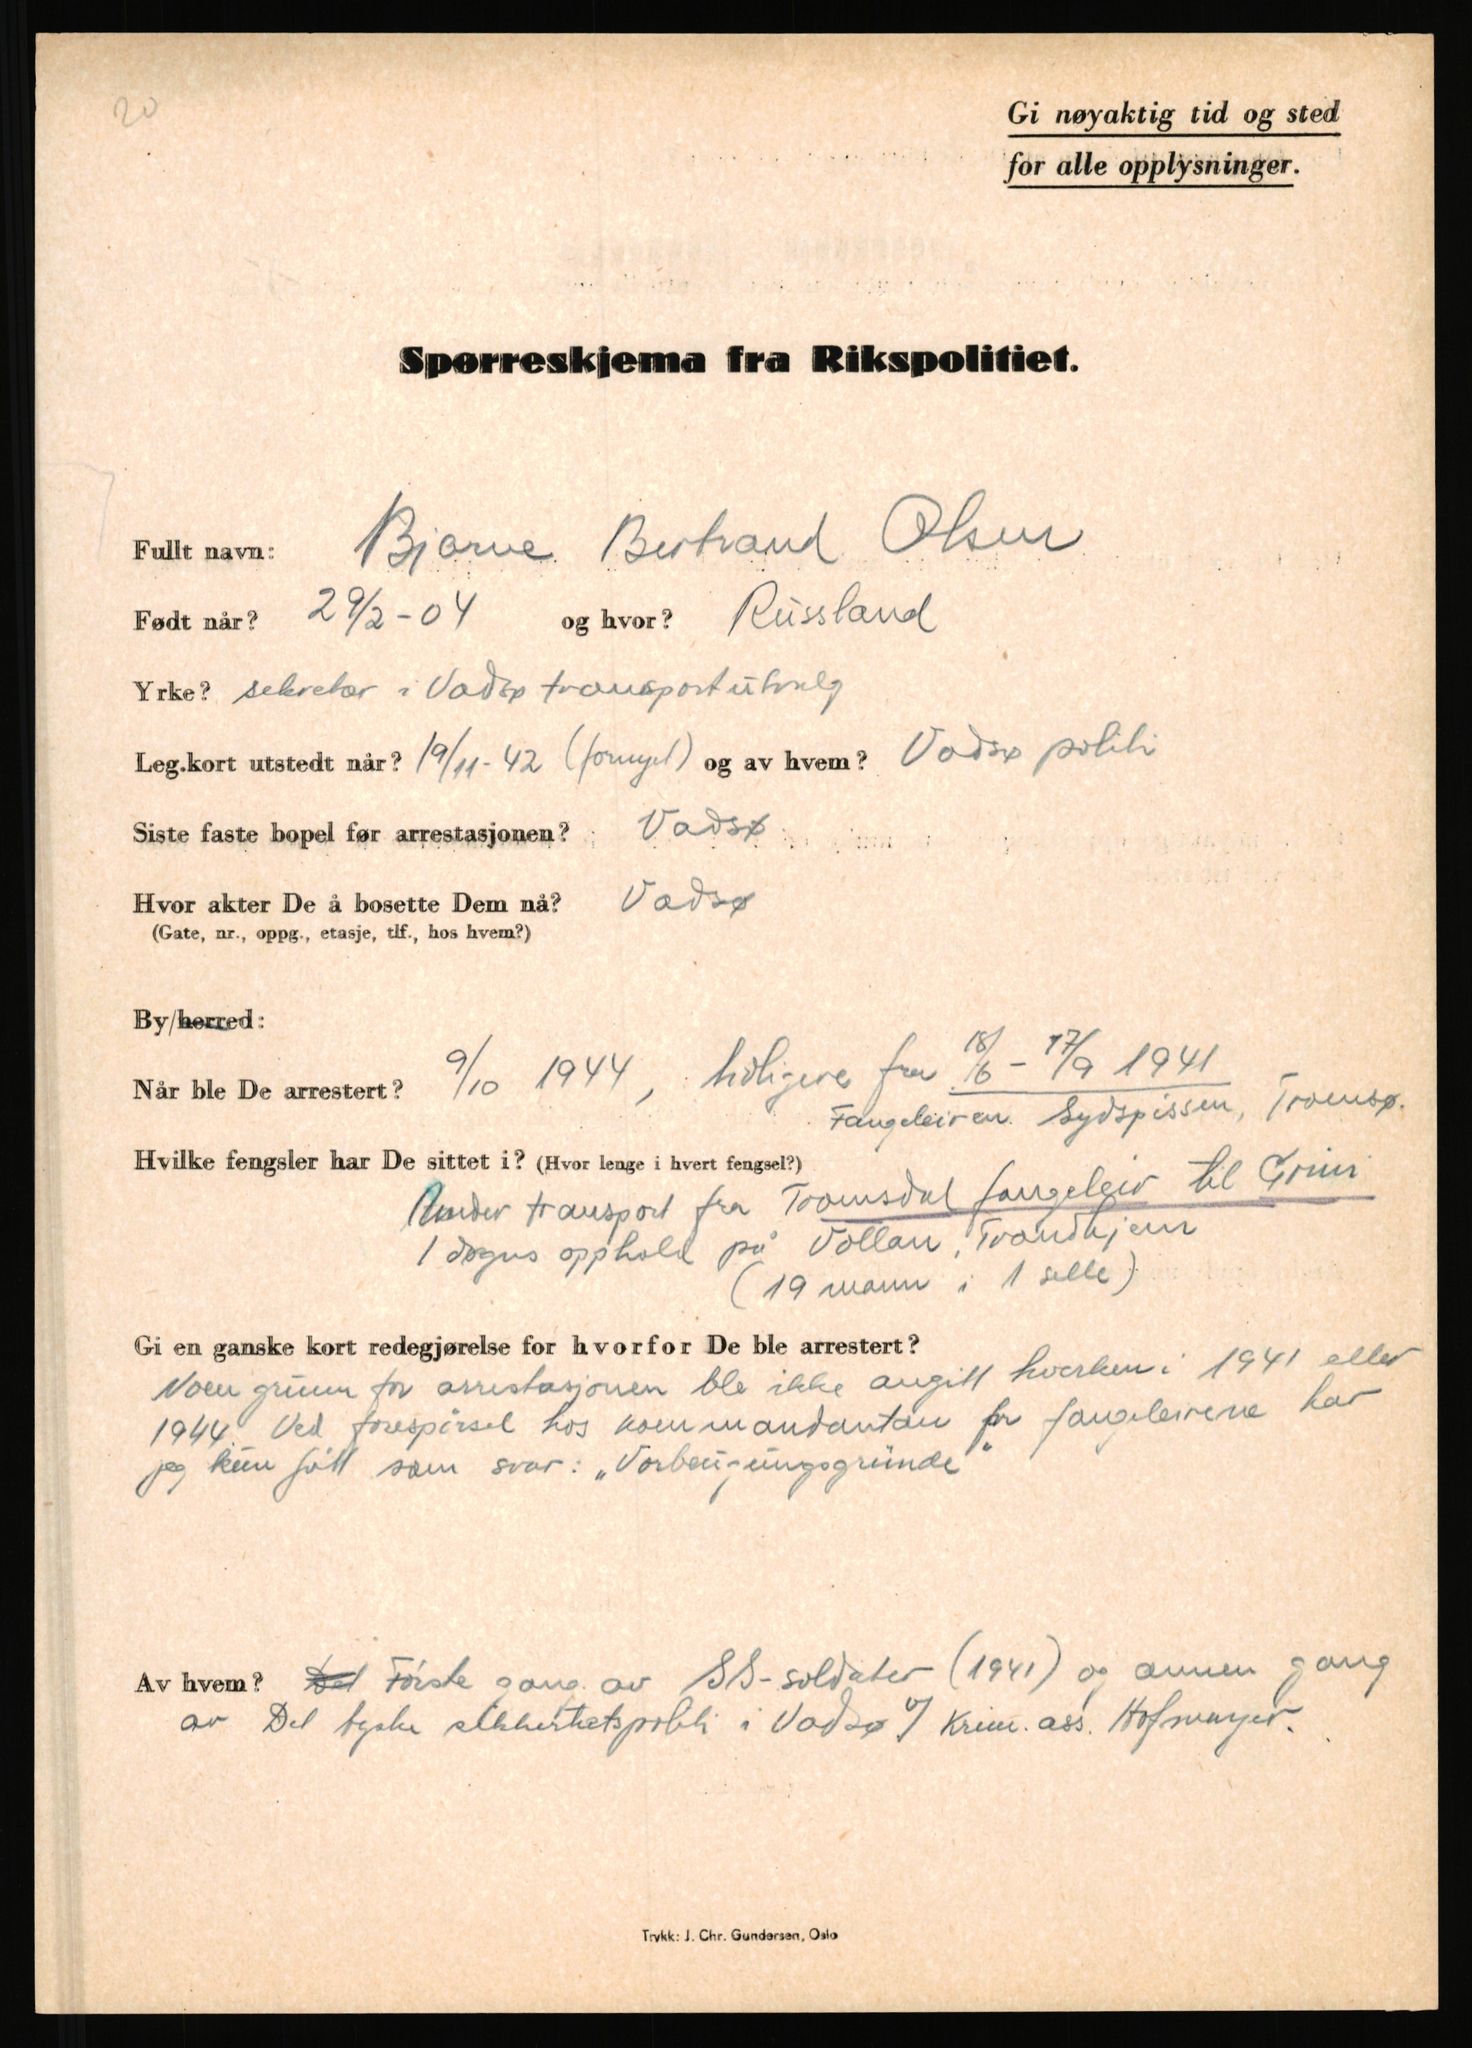 20
Gi nøyaktig tid og sted
for alle opplysninger.
Spørreskjema fra Rikspolitiet.
Fullt navn: Bjarne Bertrand Olsen
Født når? 29/2-04 og hvor? Russland
Yrke? sekretær i Vadsø transportutvalg
Leg.kort utstedt når? 19/11-42 (fornyet) og av hvem? Vadsø politi
Siste faste bopel før arrestasjonen? Vadsø
Hvor akter De å bosette Dem nå? Vadsø
(Gate, nr., oppg., etasje, tlf., hos hvem?)
By/herred:
Når ble De arrestert? 9/10 1944, tidligere fra 18/6 - 17/9 1941
Fangeleiren Sydspissen, Tromsø.
Hvilke fengsler har De sittet i? (Hvor lenge i hvert fengsel?)
Under transport fra Tromsdal fangeleir til Grini
1 døgns opphold på Vollan, Trondhjem
(19 mann i 1 selle)
Gi en ganske kort redegjørelse for hvorfor De ble arrestert?
Noen grunn for arrestasjonen ble ikke angitt hverken i 1941 eller
1944. Ved forespørsel hos kommandanten for fangeleirene har
jeg kun fått som svar: „Vorbeugungsgründe"
Av hvem? Det Første gang av SS-soldater (1941) og annen gang
av Det tyske sikkerhetspoliti i Vadsø v/ Krim. ass. Hofmayer.
Trykk: J. Chr. Gundersen, Oslo